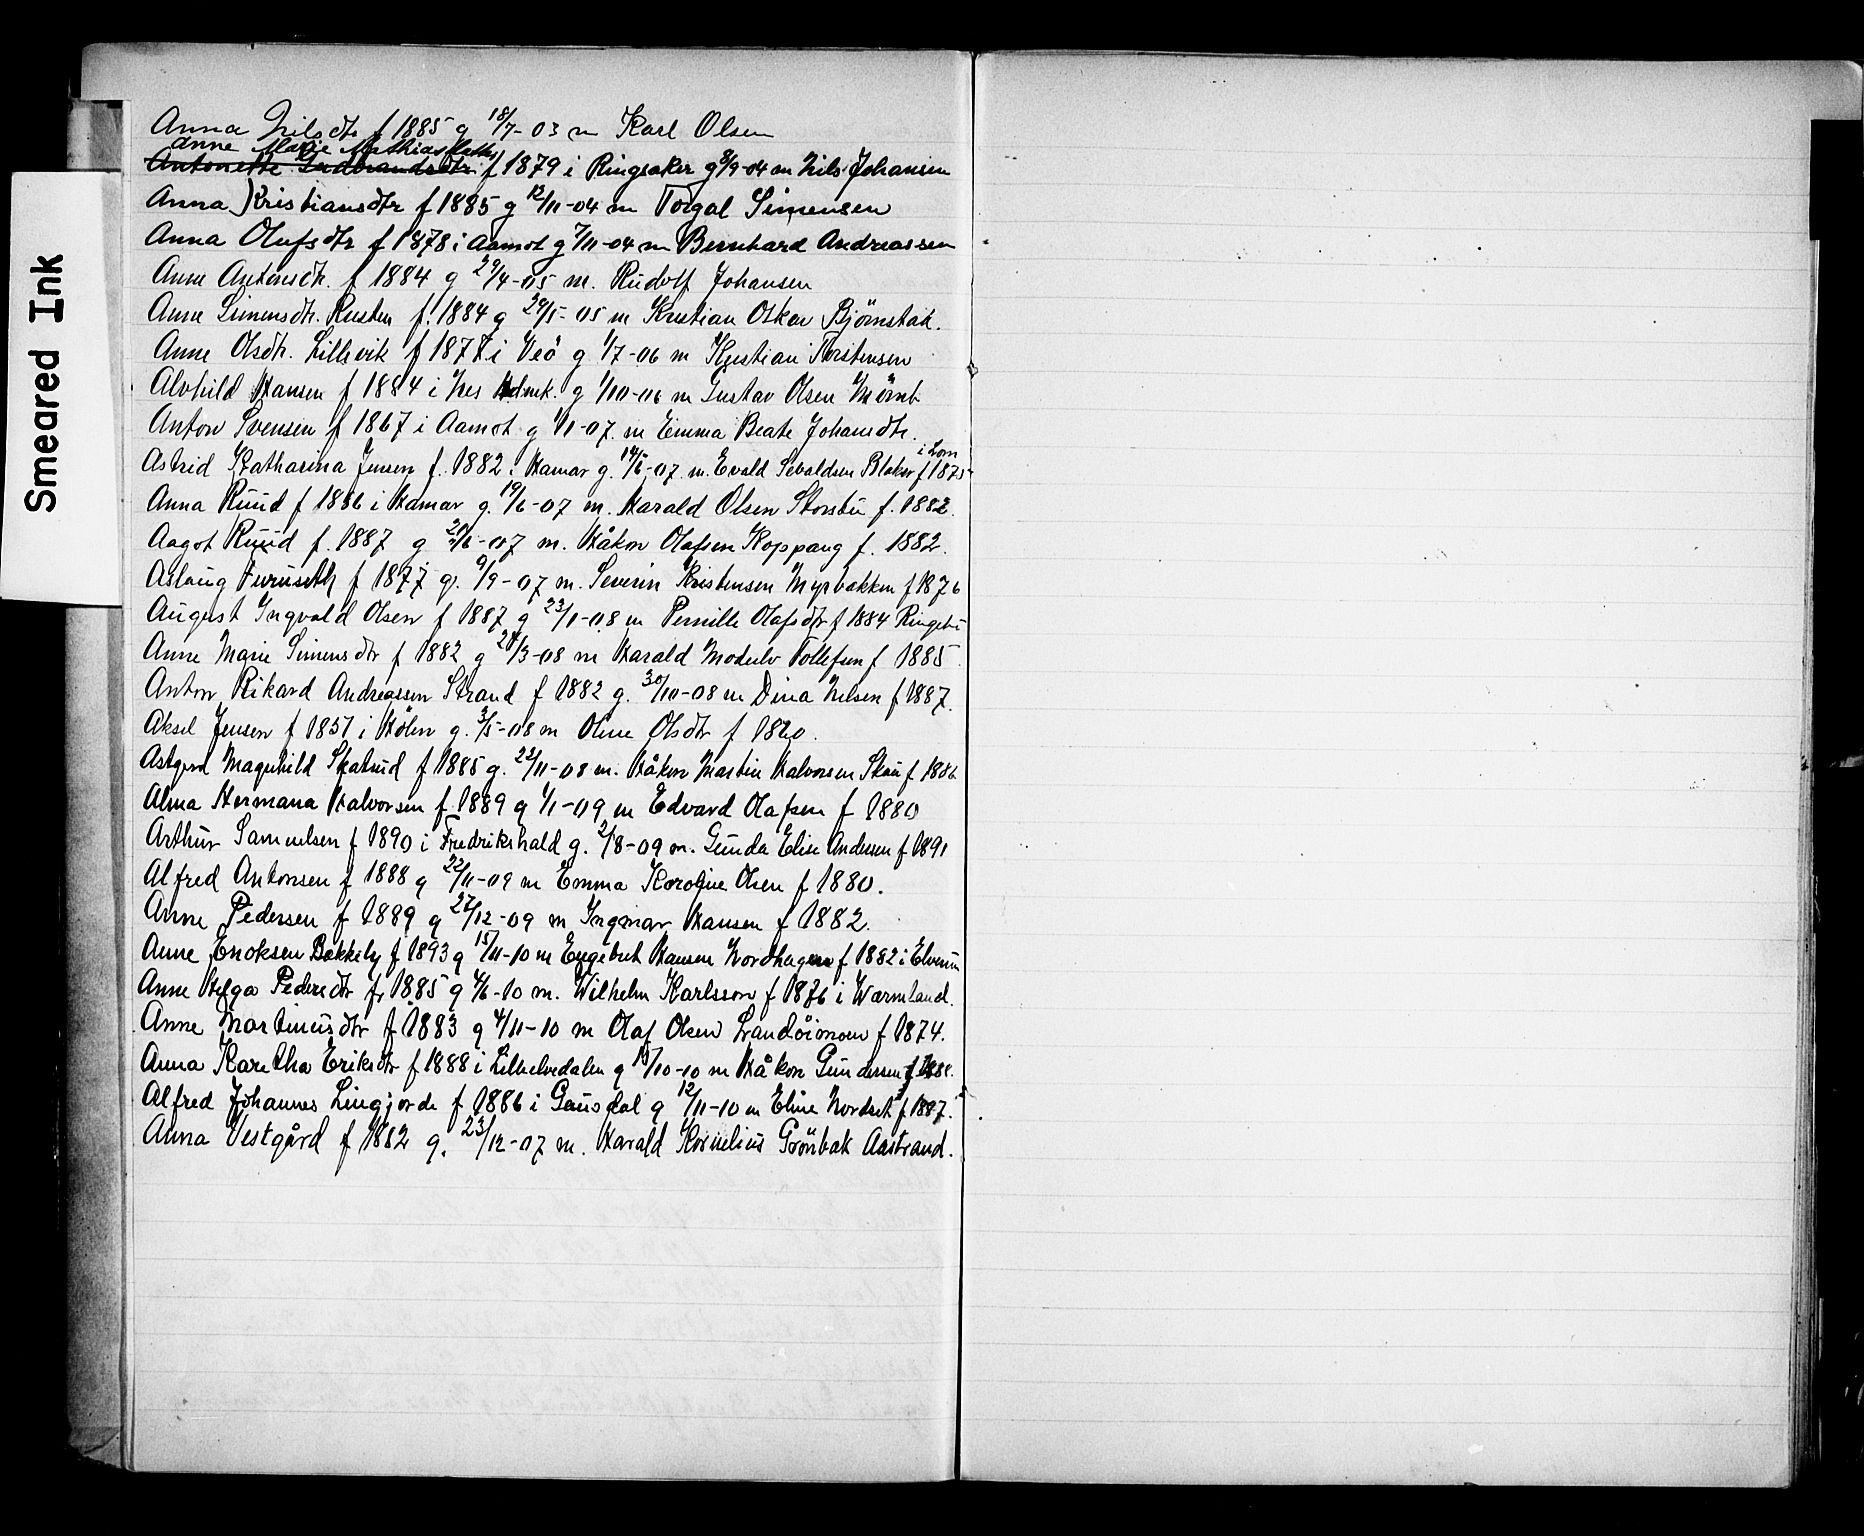 Smeared Ink
Anna Nilsdtr f 1885 g 18/7-03 m Karl Olsen
Anne Marie Mathias
Antonette Gudbrandsdtr f 1879 i Ringsaker g 8/9-04 m Nils Johansen
Anna Kristiansdtr f 1885 g 12/11-04 m Torgal Simensen
Anna Olufsdtr f 1878 i Aamot g 7/11-04 m Bernhard Andreassen
Anne Antonsdtr. f 1884 g 29/4-05 m. Rudolf Johansen
Anne Simensdtr. Rusten f. 1884 g 29/5-05 m Kristian Oskar Björnstak.
Anne Olsdtr. Lillevik f 1877 i Veö g 1/7-06 m Kristian Torstensen
Alvhild Hansen f 1884 i Nes Hdmk. g 1/10-06 m Gustav Olsen
Anton Svensen f 1867 i Aamot g 1/1-07. m Emma Beate Johansdtr.
i Lom
Astrid Katharina Jensen f. 1882 i Hamar g. 14/5-07. m. Evald Sevaldsen Blaker f 1875
Anna Ruud f 1886 i Hamar g. 19/6-07 m. Harald Olsen Storstu f. 1882.
Aagot Ruud f. 1887 g 20/6-07 m. Håkon Olafsen Koppang f. 1882.
Aslaug Furuseth f 1877 g. 9/9-07 m. Severin Kristensen Myrbakken f 1876
August Ingvald Olsen f 1887 g 23/1-08 m Pernille Olafsdtr f 1884 Ringebu
Anne Marie Simensdtr f 1882 g 28/3-08 m Harald Modulv Tollefsen f 1885.
Anton Rikard Andreassen Strand f 1882 g. 30/10-08 m Dina Nilsen f 1887.
Aksel Jensen f 1857 i g. 3/5-08 m Oline Olsdtr f 1860.
Magnhild Skatrud f 1885 g. 22/11-08 m. Håkon Martin Halvorsen Skau f 1886
Alma Hermana Halvorsen f. 1889 g 1/1-09 m Edvard Olafsen f 1880
Arthur Samuelsen f 1890 i Fredrikshald g. 2/8-09 m. Gunda Elise Andersen f 1891
Alfred Antonsen f 1888 g 22/11-09 m Emma Karoline Olsen f 1880.
Anne Pedersen f 1889 g 27/12-09 m Ingmar Hansen f 1882.
Anne Enoksen Bakkely f 1893 g 15/11-10 m Engebret Hansen Nordhagen f 1882 i Elverum
Anne Helga Pedersdtr f. 1885 g 4/6-10 m. Wilhelm Karlsson f 1876 i Wärmland.
Anne Martinusdtr f 1883 g 4/11-10 m Olaf Olsen f 1874.
Anna Karetha Eriksdtr f 1888 i Lilleelvedalen g 15/10-10 m Håkon Gundersen f 1888.
Alfred Johannes Lingjorde f 1886 i Gausdal g 12/11-10 m Eline Nordset f 1887.
Anna Vestgård f 1882 g. 23/12-07 m. Harald Kornelius Grönbak Aastrand.